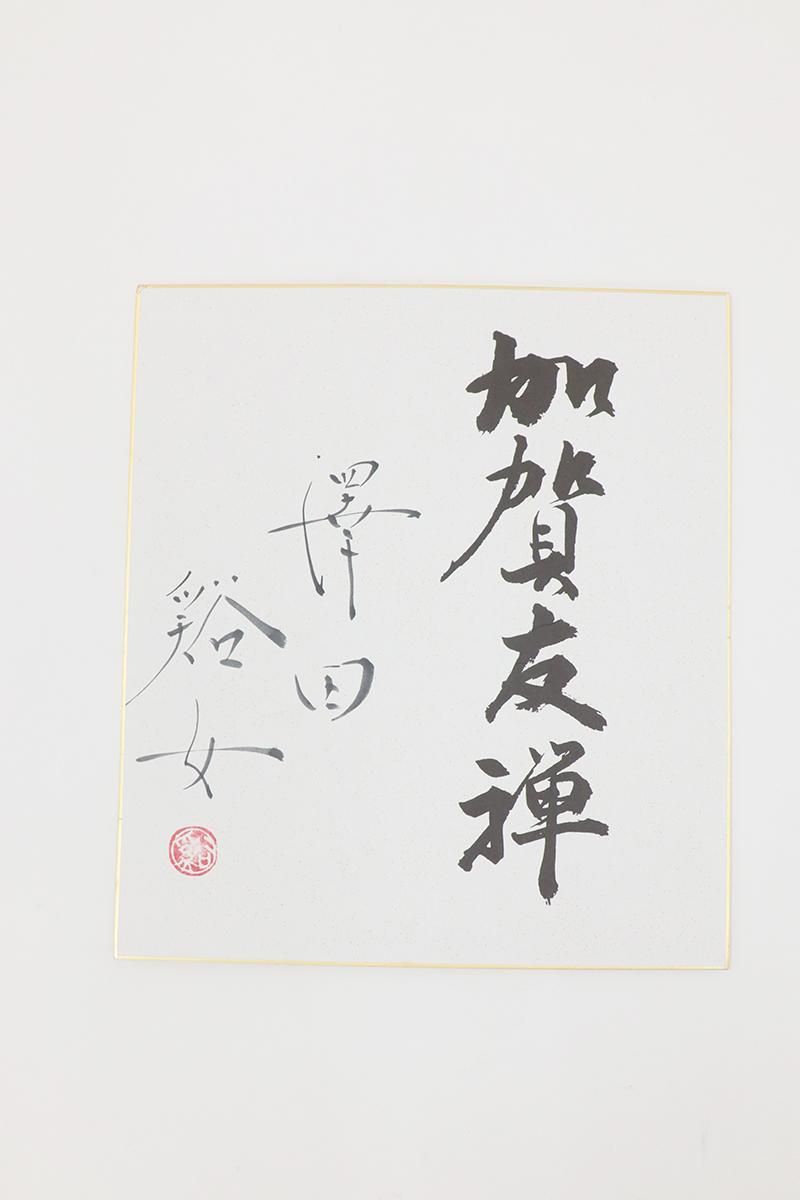 加賀友禅
澤田
谿女